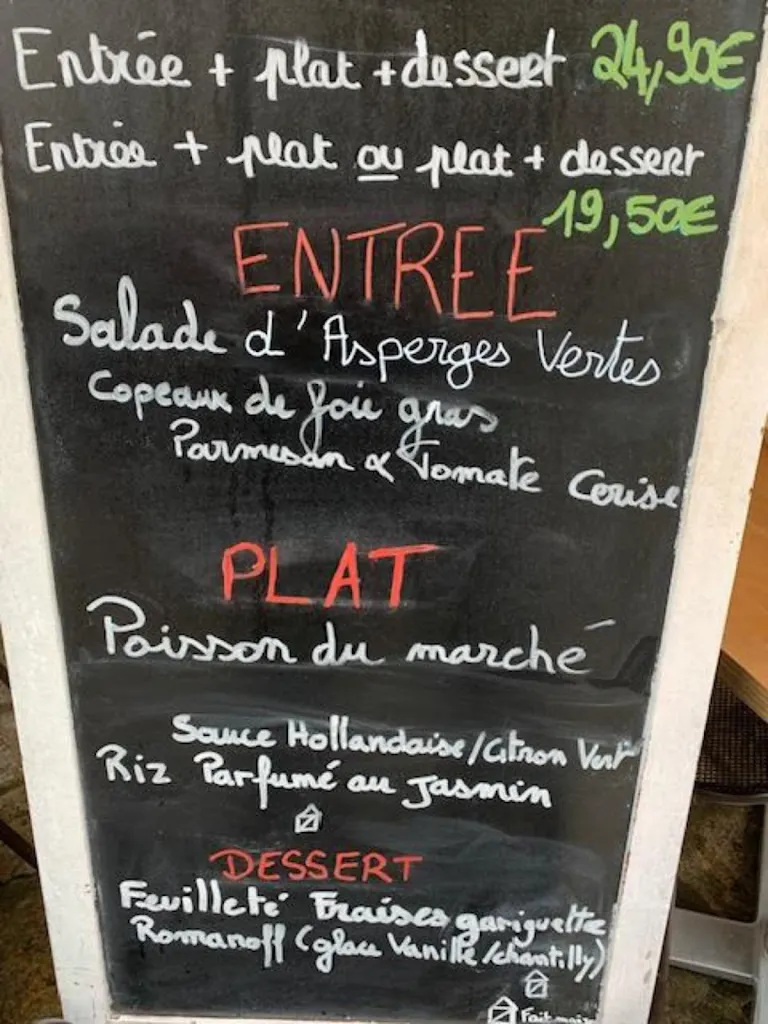 Entrée + plat + dessert 24,90€
Entrée + plat ou plat + dessert
19,50€
ENTREE
Salade d'Asperges Vertes
Copeaux de foie gras
Parmesan & Tomate Cerise
PLAT
Poisson du marché
Sauce Hollandaise/Citron Vert
Riz Parfumé au Jasmin
DESSERT
Feuilleté Fraises gariguette
Romanoff (glace Vanille/chantilly)
Fait maison